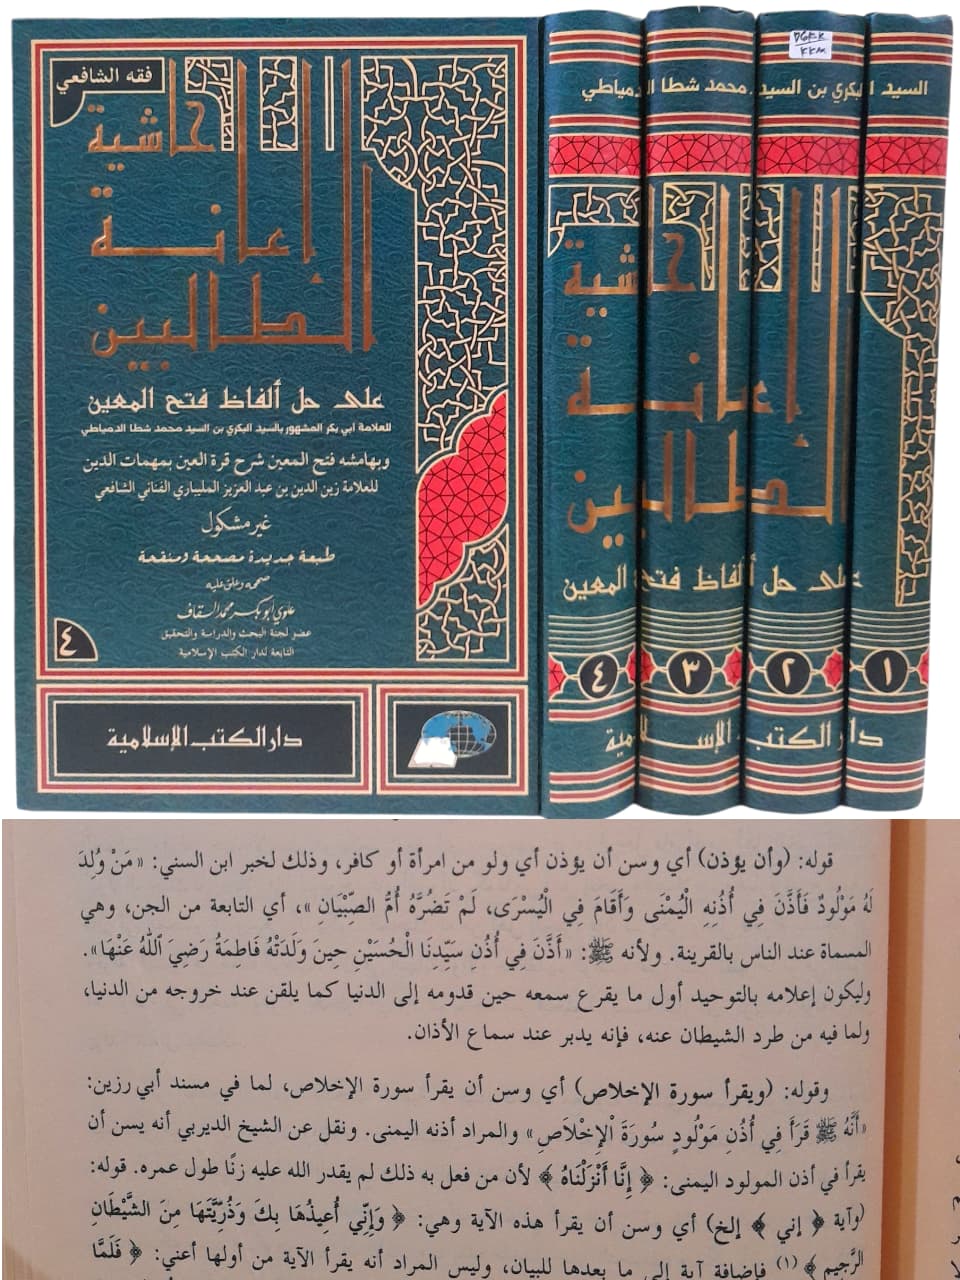 فقه الشافعي
حاشية
إعانة
الطالبين
على حل ألفاظ فتح المعين
للعلامة أبي بكر المشهور بالسيد البكري بن السيد محمد شطا الدمياطي
وبهامشه فتح المعين شرح قرة العين بمهمات الدين
للعلامة زين الدين بن عبد العزيز المليباري الفناني الشافعي
غير مشكول
طبعة جديدة مصححة ومنقحة
صححه وعلق عليه
علوي أبو بكر محمد السقاف
عضو لجنة البحث والدراسة والتحقيق
التابعة لدار الكتب الإسلامية
٤
دار الكتب الإسلامية
السيد البكري بن السيد محمد شطا الدمياطي
حاشية
إعانة
الطالبين
على حل ألفاظ فتح المعين
١ ٢ ٣ ٤
دار الكتب الإسلامية
قوله: (وأن يؤذن) أي وسن أن يؤذن أي ولو من امرأة أو كافر، وذلك لخبر ابن السني: «مَنْ وُلِدَ
لَهُ مَوْلُودٌ فَأَذَّنَ فِي أُذُنِهِ الْيُمْنَى وَأَقَامَ فِي الْيُسْرَى، لَمْ تَضُرَّهُ أُمُّ الصِّبْيَانِ»، أي التابعة من الجن، وهي
المسماة عند الناس بالقرينة. ولأنه ﷺ: «أَذَّنَ فِي أُذُنِ سَيِّدِنَا الْحُسَيْنِ حِينَ وَلَدَتْهُ فَاطِمَةُ رَضِيَ اللهُ عَنْهَا».
وليكون إعلامه بالتوحيد أول ما يقرع سمعه حين قدومه إلى الدنيا كما يلقن عند خروجه من الدنيا،
ولما فيه من طرد الشيطان عنه، فإنه يدبر عند سماع الأذان.
وقوله: (ويقرأ سورة الإخلاص) أي وسن أن يقرأ سورة الإخلاص، لما في مسند أبي رزين:
«أَنَّهُ ﷺ قَرَأَ فِي أُذُنِ مَوْلُودٍ سُورَةَ الْإِخْلَاصِ» والمراد أذنه اليمنى. ونقل عن الشيخ الديربي أنه يسن أن
يقرأ في أذن المولود اليمنى: ﴿إِنَّا أَنْزَلْنَاهُ﴾ لأن من فعل به ذلك لم يقدر الله عليه زنًا طول عمره. قوله:
(وآية ﴿إني﴾ إلخ) أي وسن أن يقرأ هذه الآية وهي: ﴿وَإِنِّي أُعِيذُهَا بِكَ وَذُرِّيَّتَهَا مِنَ الشَّيْطَانِ
الرَّجِيمِ﴾ (١) فإضافة آية إلى ما بعدها للبيان، وليس المراد أنه يقرأ الآية من أولها أعني: ﴿فَلَمَّا